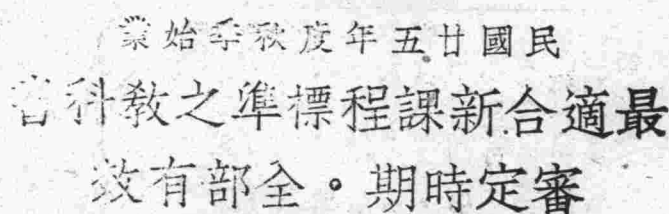 民國廿五年度秋季始業
最適合新課程標準之教科書
審定時期。全部有效